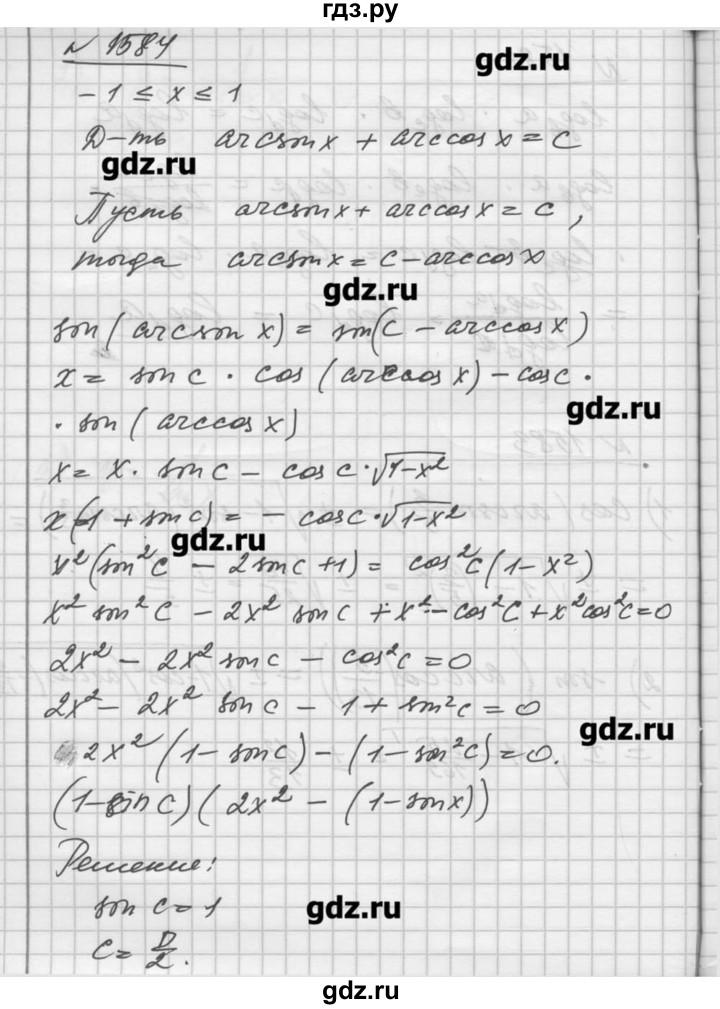 гдз.ру
№ 1584
gdz.ru
-1 ≤ x ≤ 1
Д-ть arcsin x + arccos x = C
gdz.ru
Пусть arcsin x + arccos x = C,
тогда arcsin x = C - arccos x
gdz.ru
sin(arcsin x) = sin(C - arccos x)
x = sin C · cos(arccos x) - cos C ·
gdz.ru
· sin(arccos x)
x = x · sin C - cos C · √1-x²
x(-1 + sin C) = - cos C · √1-x²
gdz.ru
x²(sin²C - 2 sin C + 1) = cos²C(1-x²)
x² sin²C - 2x² sin C + x² - cos²C + x² cos²C = 0
2x² - 2x² sin C - cos²C = 0
2x² - 2x² sin C - 1 + sin²C = 0
gdz.ru
2x²(1 - sin C) - (1 - sin²C) = 0.
(1 - sin C)(2x² - (1 - sin x))
Решение:
sin C = 1
gdz.ru
C = П/2.
gdz.ru